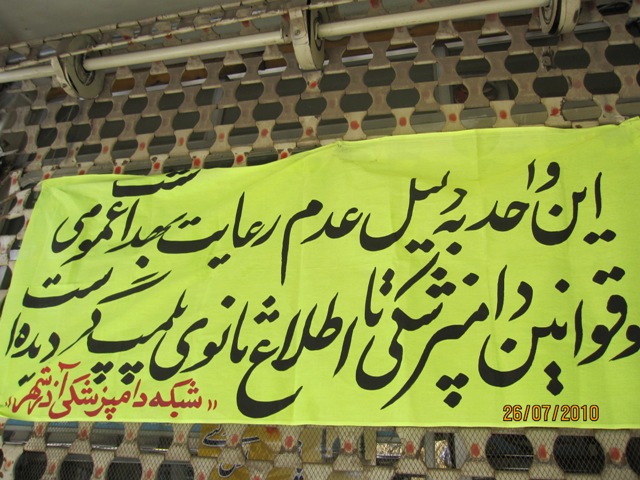 این واحد به دلیل عدم رعایت بهداشت عمومی
و قوانین دامپزشکی تا اطلاع ثانوی پلمپ گردیده است
«شبکه دامپزشکی آذرشهر»
26/07/2010